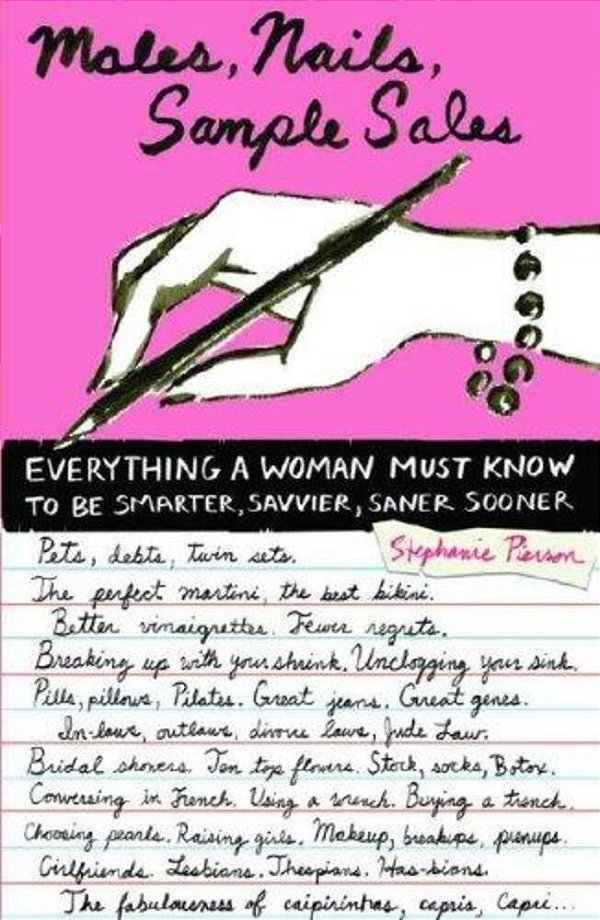 Males, Nails,
Sample Sales
EVERYTHING A WOMAN MUST KNOW
TO BE SMARTER, SAVVIER, SANER SOONER
Stephanie Pierson
Pets, debts, twin sets.
The perfect martini, the best bikini.
Better vinaigrettes. Fewer regrets.
Breaking up with your shrink. Unclogging your sink.
Pills, pillows, Pilates. Great jeans. Great genes.
In-laws, outlaws, divorce laws, Jude Law.
Bridal showers. Ten top flowers. Stock, socks, Botox.
Conversing in French. Using a wrench. Buying a trench.
Choosing pearls. Raising girls. Makeup, breakups, prenups.
Girlfriends. Lesbians. Thespians. Has-bians.
The fabulousness of caipirinhas, capris, Capri...